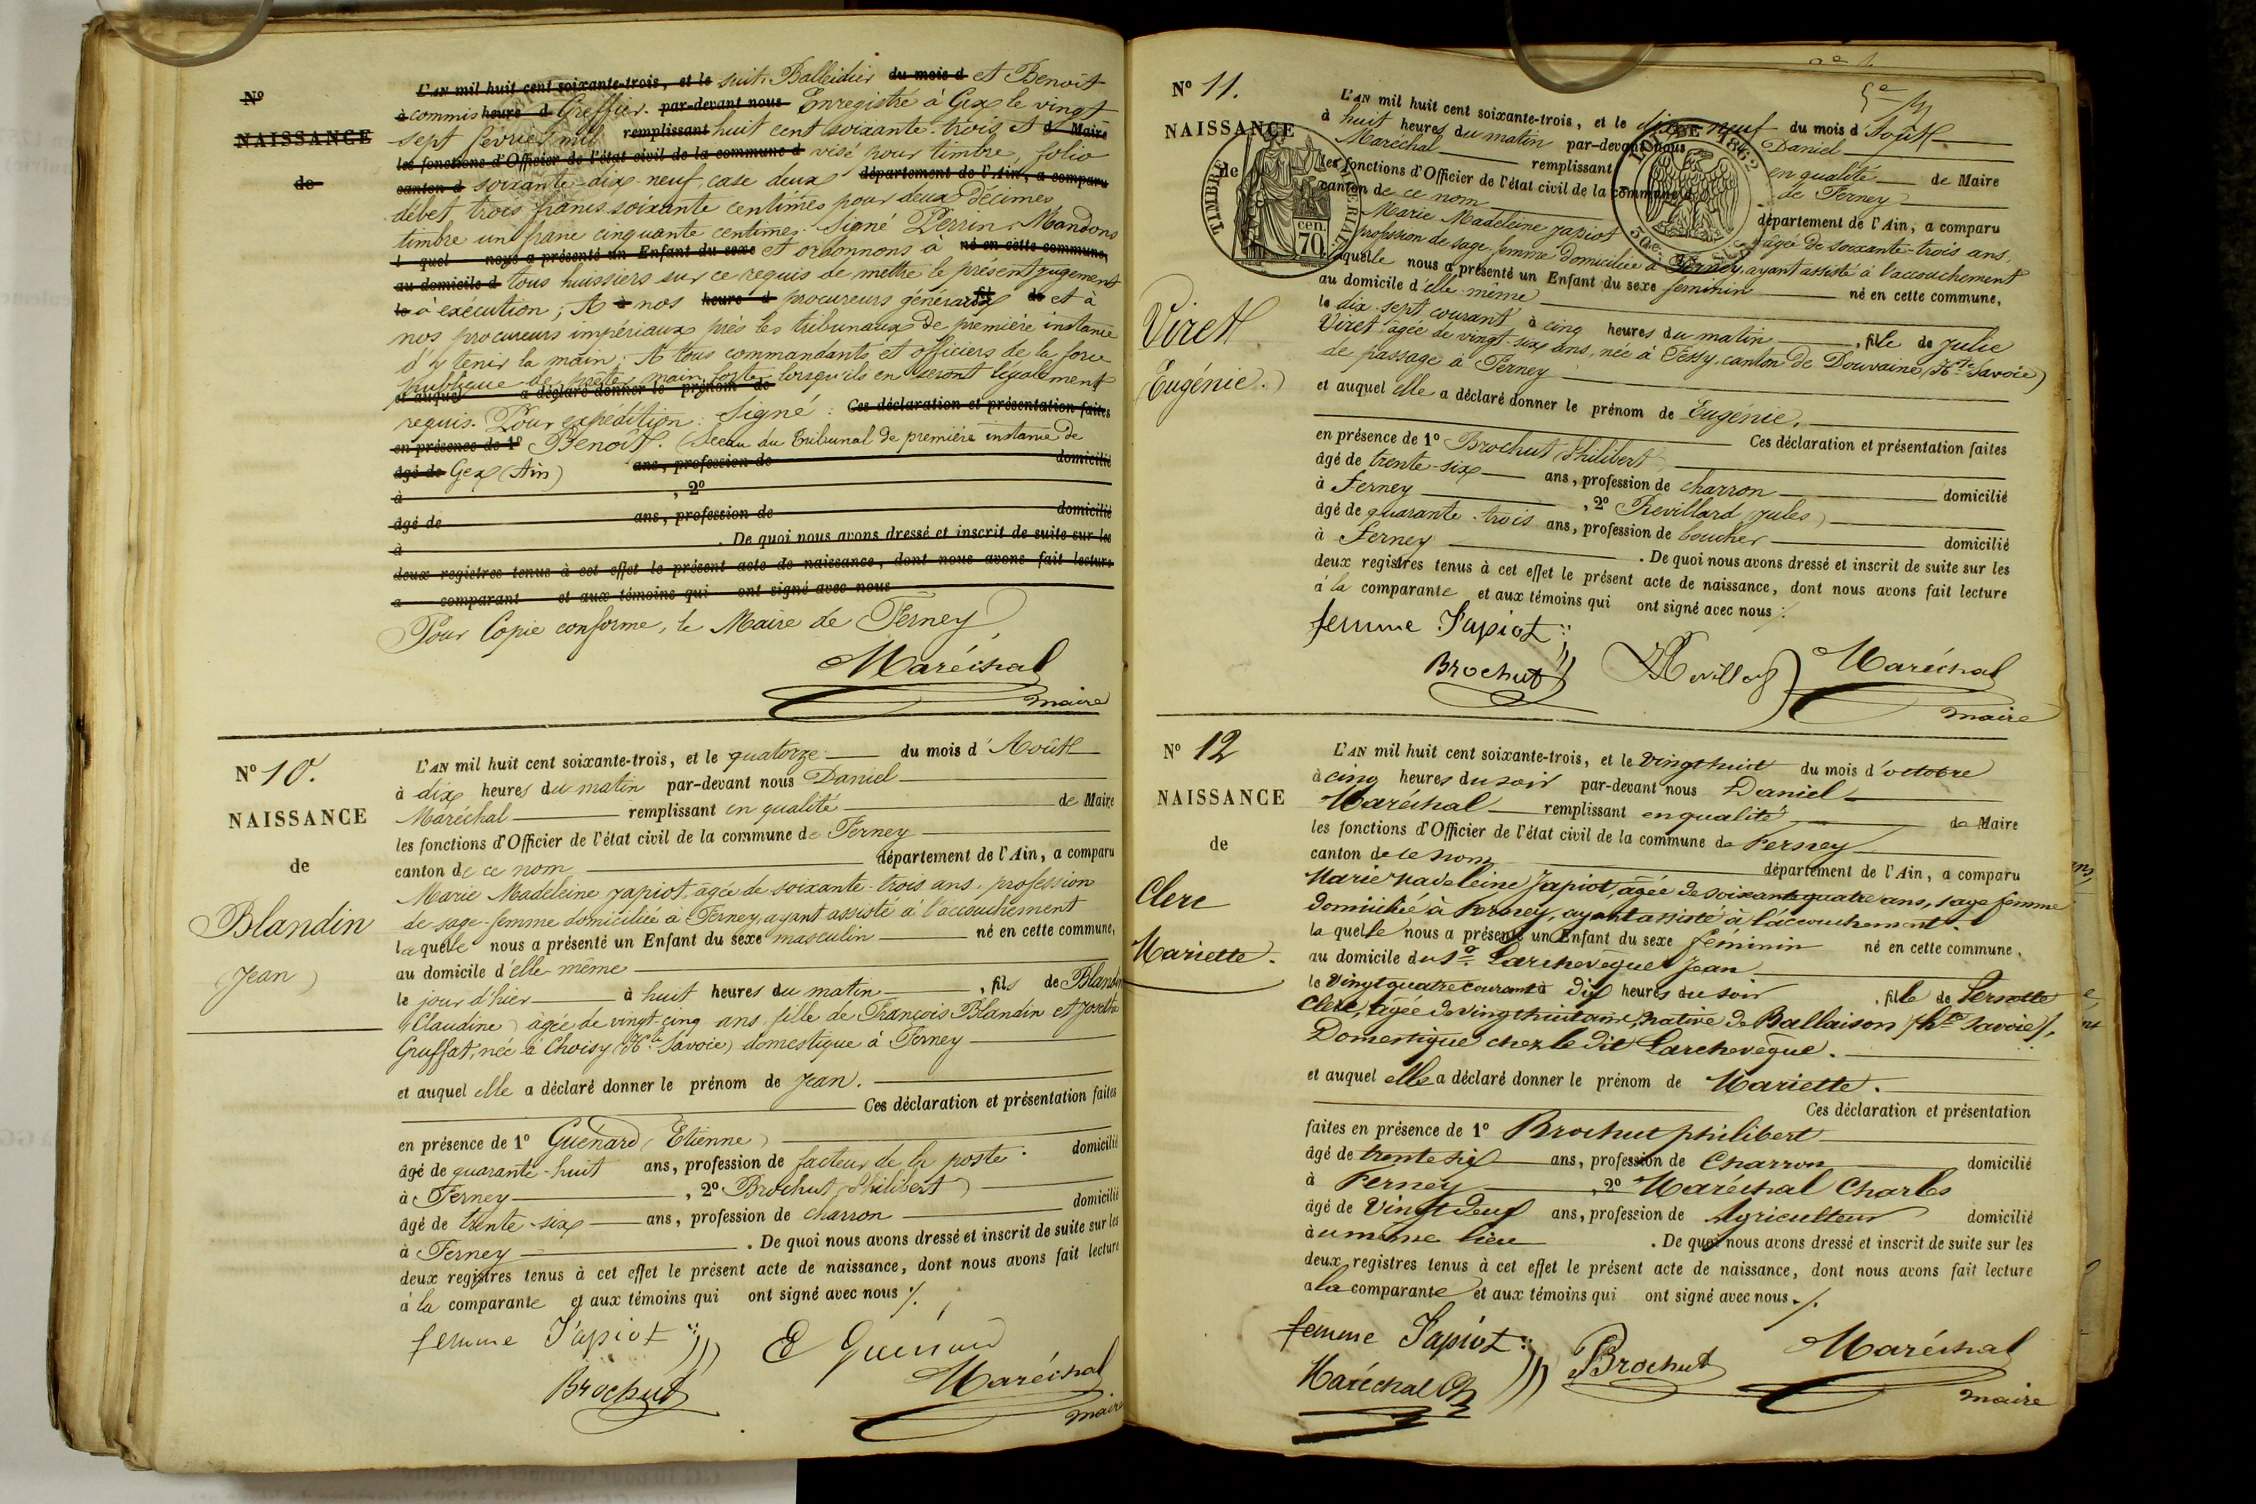 N°
NAISSANCE
de
L'AN mil huit cent soixante-trois, et le suit. Balleidier du mois d et Benoit
à commis heure d Greffier. par-devant nous Enregistré à Gex le vingt
sept février mil remplissant huit cent soixante-trois et d Maire
les fonctions d'Officier de l'état civil de la commune d visé pour timbre, folio
canton d soixante-dix-neuf, case deux département de l'Ain, a comparu
débet trois francs soixante centimes pour deux décimes
timbre un franc cinquante centimes. Signé Perrin. Mandons
l quel nous a présenté un Enfant du sexe et ordonnons à né en cette commune,
au domicile d tous huissiers sur ce requis de mettre le présent jugement
le à exécution; A à nos heure d procureurs généraux fil de et à
nos procureurs impériaux près les tribunaux de première instance
d'y tenir la main. A tous commandants et officiers de la force
publique de prêter main forte lorsqu'ils en seront légalement
et auquel a déclaré donner le prénom de
requis. Pour expédition: Signé: Ces déclaration et présentation faites
en présence de 1° Benoit. (Sceau du Tribunal de première instance de
âgé de Gex (Ain) ans, profession de domicilié
à , 2°
âgé de ans, profession de domicilié
à . De quoi nous avons dressé et inscrit de suite sur les
deux registres tenus à cet effet le présent acte de naissance, dont nous avons fait lecture
a comparant et aux témoins qui ont signé avec nous
Pour Copie conforme, le Maire de Ferney,
Maréchal
maire
N° 10.
NAISSANCE
de
Blandin
Jean
L'AN mil huit cent soixante-trois, et le quatorze du mois d'Août
à dix heures du matin par-devant nous Daniel
Maréchal remplissant en qualité de Maire
les fonctions d'Officier de l'état civil de la commune de Ferney
canton de ce nom département de l'Ain, a comparu
Marie Madeleine Japiot, âgée de soixante-trois ans, profession
de sage-femme domiciliée à Ferney, ayant assisté à l'accouchement
laquelle nous a présenté un Enfant du sexe masculin né en cette commune,
au domicile d'elle même
le jour d'hier à huit heures du matin , fils de Blandin
(Claudine) âgée de vingt-cinq ans, fille de François Blandin et Josette
Gruffat, née à Choisy (Hte Savoie) domestique à Ferney
et auquel elle a déclaré donner le prénom de Jean.
Ces déclaration et présentation faites
en présence de 1° Guénard (Etienne)
âgé de quarante-huit ans, profession de facteur de la poste. domicilié
à Ferney , 2° Brochut (Philibert)
âgé de trente-six ans, profession de charron domicilié
à Ferney . De quoi nous avons dressé et inscrit de suite sur les
deux registres tenus à cet effet le présent acte de naissance, dont nous avons fait lecture
à la comparante et aux témoins qui ont signé avec nous ./.
femme Japiot
E Guénard
Brochut
Maréchal
maire
N° 11.
NAISSANCE
de
TIMBRE IMPERIAL
70 cen.
1862
Viret
(Eugénie.)
L'AN mil huit cent soixante-trois, et le dix-neuf du mois d'Août
à huit heures du matin par-devant nous Daniel
Maréchal remplissant en qualité de Maire
les fonctions d'Officier de l'état civil de la commune de Ferney
canton de ce nom département de l'Ain, a comparu
Marie Madeleine Japiot âgée de soixante-trois ans,
profession de sage-femme domiciliée à Ferney, ayant assisté à l'accouchement
laquelle nous a présenté un Enfant du sexe féminin né en cette commune,
au domicile d'elle-même
le dix-sept courant à cinq heures du matin , fille de Julie
Viret, âgée de vingt-six ans, née à Cessy, canton de Douvaine (Hte Savoie)
de passage à Ferney
et auquel elle a déclaré donner le prénom de Eugénie.
Ces déclaration et présentation faites
en présence de 1° Brochut (Philibert)
âgé de trente-six ans, profession de charron domicilié
à Ferney , 2° Revillard (Jules)
âgé de quarante-trois ans, profession de boucher domicilié
à Ferney . De quoi nous avons dressé et inscrit de suite sur les
deux registres tenus à cet effet le présent acte de naissance, dont nous avons fait lecture
à la comparante et aux témoins qui ont signé avec nous ./.
femme Japiot
Brochut
Maréchal
maire
N° 12
NAISSANCE
de
Clerc
Mariette.
L'AN mil huit cent soixante-trois, et le Vingt huit du mois d'octobre
à cinq heures du soir par-devant nous Daniel
Maréchal remplissant en qualité de Maire
les fonctions d'Officier de l'état civil de la commune de Ferney
canton de ce nom département de l'Ain, a comparu
Marie Madeleine Japiot, âgée de soixante quatre ans, sage femme
domiciliée à Ferney, ayant assisté à l'accouchement.
laquelle nous a présenté un Enfant du sexe féminin né en cette commune,
au domicile du Sr Larchevêque Jean
le Vingt quatre courant à dix heures du soir , fille de
Clerc, âgée de vingt huit ans, native de Ballaison (Hte Savoie),
Domestique chez le dit Larchevêque.
et auquel elle a déclaré donner le prénom de Mariette.
Ces déclaration et présentation
faites en présence de 1° Brochut philibert
âgé de trente six ans, profession de Charron domicilié
à Ferney , 2° Maréchal Charles
âgé de Vingt deux ans, profession de Agriculteur domicilié
au même lieu . De quoi nous avons dressé et inscrit de suite sur les
deux registres tenus à cet effet le présent acte de naissance, dont nous avons fait lecture
a la comparante et aux témoins qui ont signé avec nous ./.
femme Japiot
Maréchal Ch
Brochut
Maréchal
maire